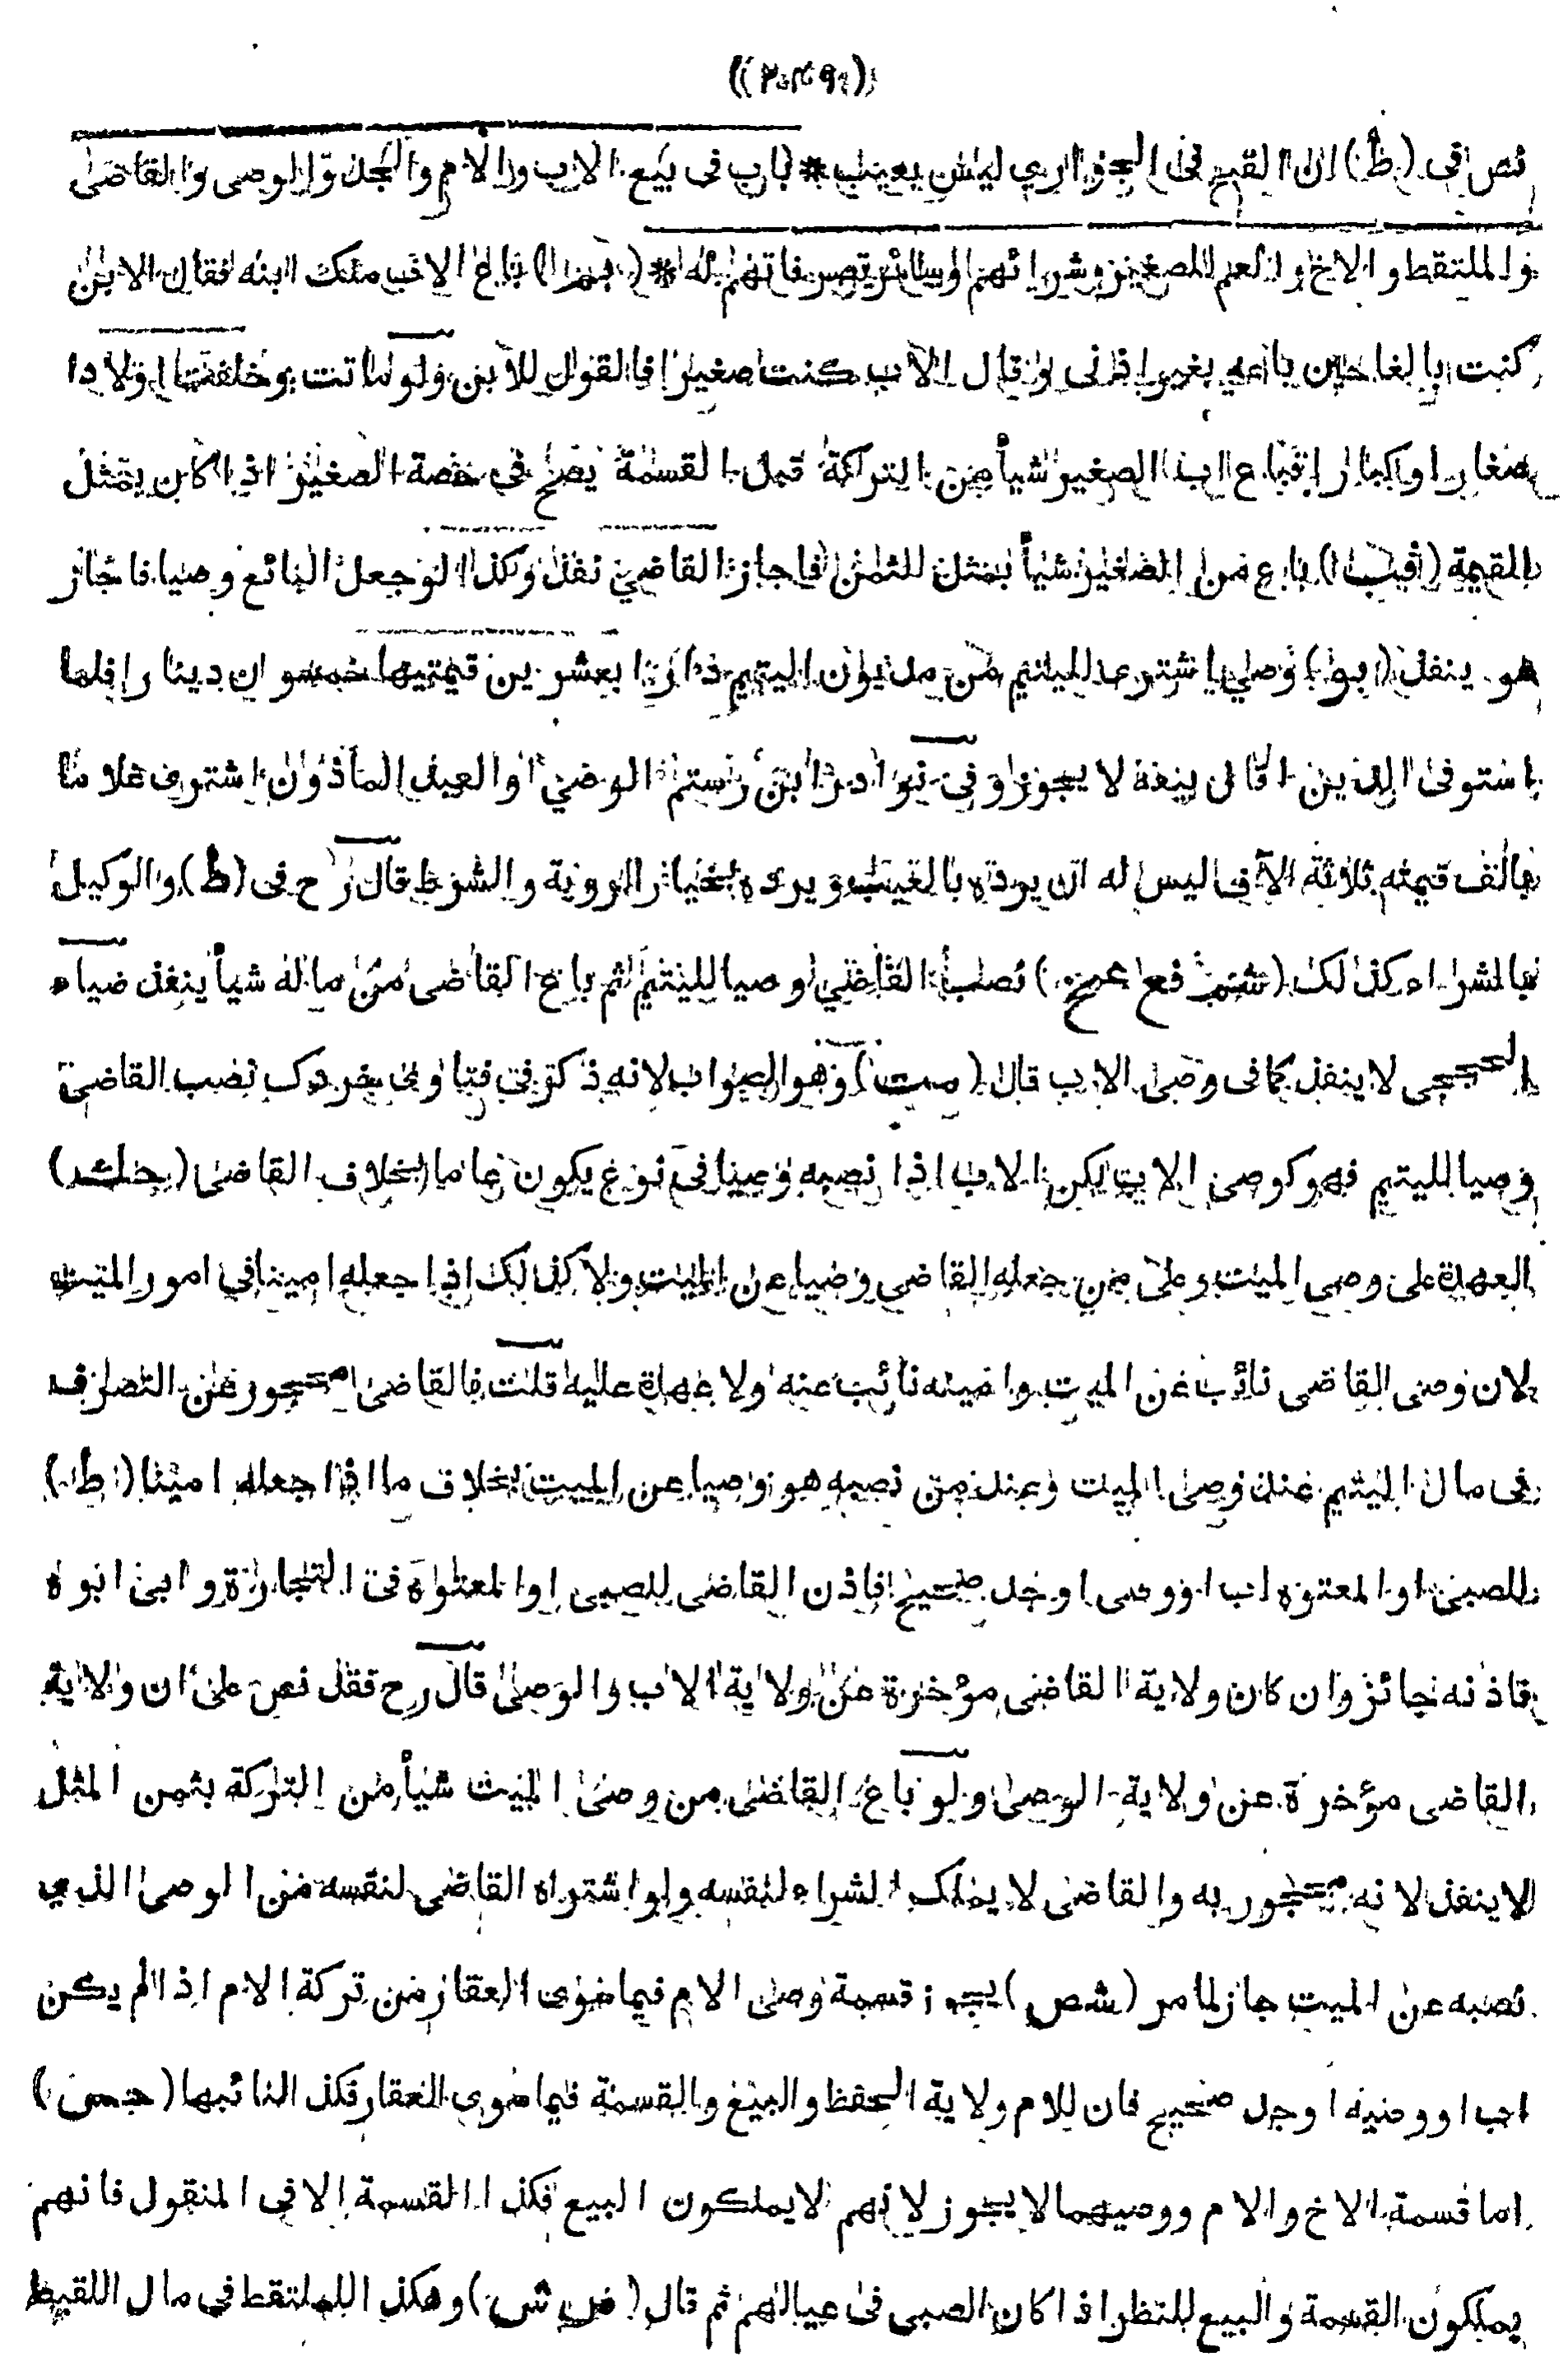 نص في (ط) ان القبح في الجواري ليس بعيب * باب في بيع الاب والام والجد والوصى والقاضى
والملتقط والاخ والعم للصغير وشرائهم وسائر تصرفاتهم له * باع الاب ملك ابنه فقال الابن
كنت بالغا حين باعه بغير اذنى وقال الاب كنت صغيرا فالقول للابن ولو ماتت وخلفت اولادا
صغارا وكبارا فباع اب الصغير شيأ من التركة قبل القسمة يصح في حصة الصغير اذا كان بمثل
القيمة باع من الصغير شيأ بمثل الثمن فاجاز القاضي نفذ وكذا لو جعل البائع وصيا فاجاز
هو ينفذ (بو) وصي اشترى لليتيم من مديون اليتيم دارا بعشرين قيمتها خمسون دينارا فلما
استوفى الدين اقال بيعه لا يجوز وفى نوادر ابن رستم الوصي او العبد المأذون اشترى غلاما
بالف قيمته ثلاثة الآف ليس له ان يرده بالعيب ويرده بخيار الروية والشرط قال رح فى (ط) والوكيل
بالشراء كذلك نصب القاضي وصيا لليتيم ثم باع القاضى من ماله شيأ ينفذ ضياء
الحججى لا ينفذ كما فى وصى الاب قال (مت) وهو الصواب لانه ذكر في فتاوى نصب القاضى
وصيا لليتيم فهو كوصى الاب لكن الاب اذا نصبه وصيا في نوع يكون عاما بخلاف القاضى
العهدة على وصى الميت وعلى من جعله القاضي وصيا عن الميت ولا كذلك اذا جعله امينا في امور الميت
لان وصى القاضى نائب عن الميت وامينه نائب عنه ولا عهدة عليه قلت فالقاضى محجور عن التصرف
في مال اليتيم عند وصى الميت وعند من نصبه هو وصيا عن الميت بخلاف ما اذا جعله امينا (ط)
للصبى او المعتوه اب او وصى او جد صحيح فاذن القاضى للصبى او المعتوه في التجارة وابى ابوه
فاذنه جائز وان كان ولاية القاضى مؤخرة عن ولاية الاب والوصى قال رح فقد نص على ان ولاية
القاضى مؤخرة عن ولاية الوصى ولو باع القاضى من وصى الميت شيأ من التركة بثمن المثل
لا ينفذ لانه محجور به والقاضى لا يملك الشراء لنفسه ولو اشتراه القاضى لنفسه من الوصى الذى
نصبه عن الميت جاز لما مر (شص) يجوز قسمة وصى الام فيما سوى العقار من تركة الام اذا لم يكن
اب او وصيه او جد صحيح فان للام ولاية الحفظ والبيع والقسمة فيما سوى العقار فكذا نائبها
اما قسمة الاخ والام ووصيهما لا يجوز لانهم لا يملكون البيع فكذا القسمة الا في المنقول فانهم
يملكون القسمة والبيع للنظر اذا كان الصبى فى عيالهم ثم قال وهكذا الملتقط في مال اللقيط